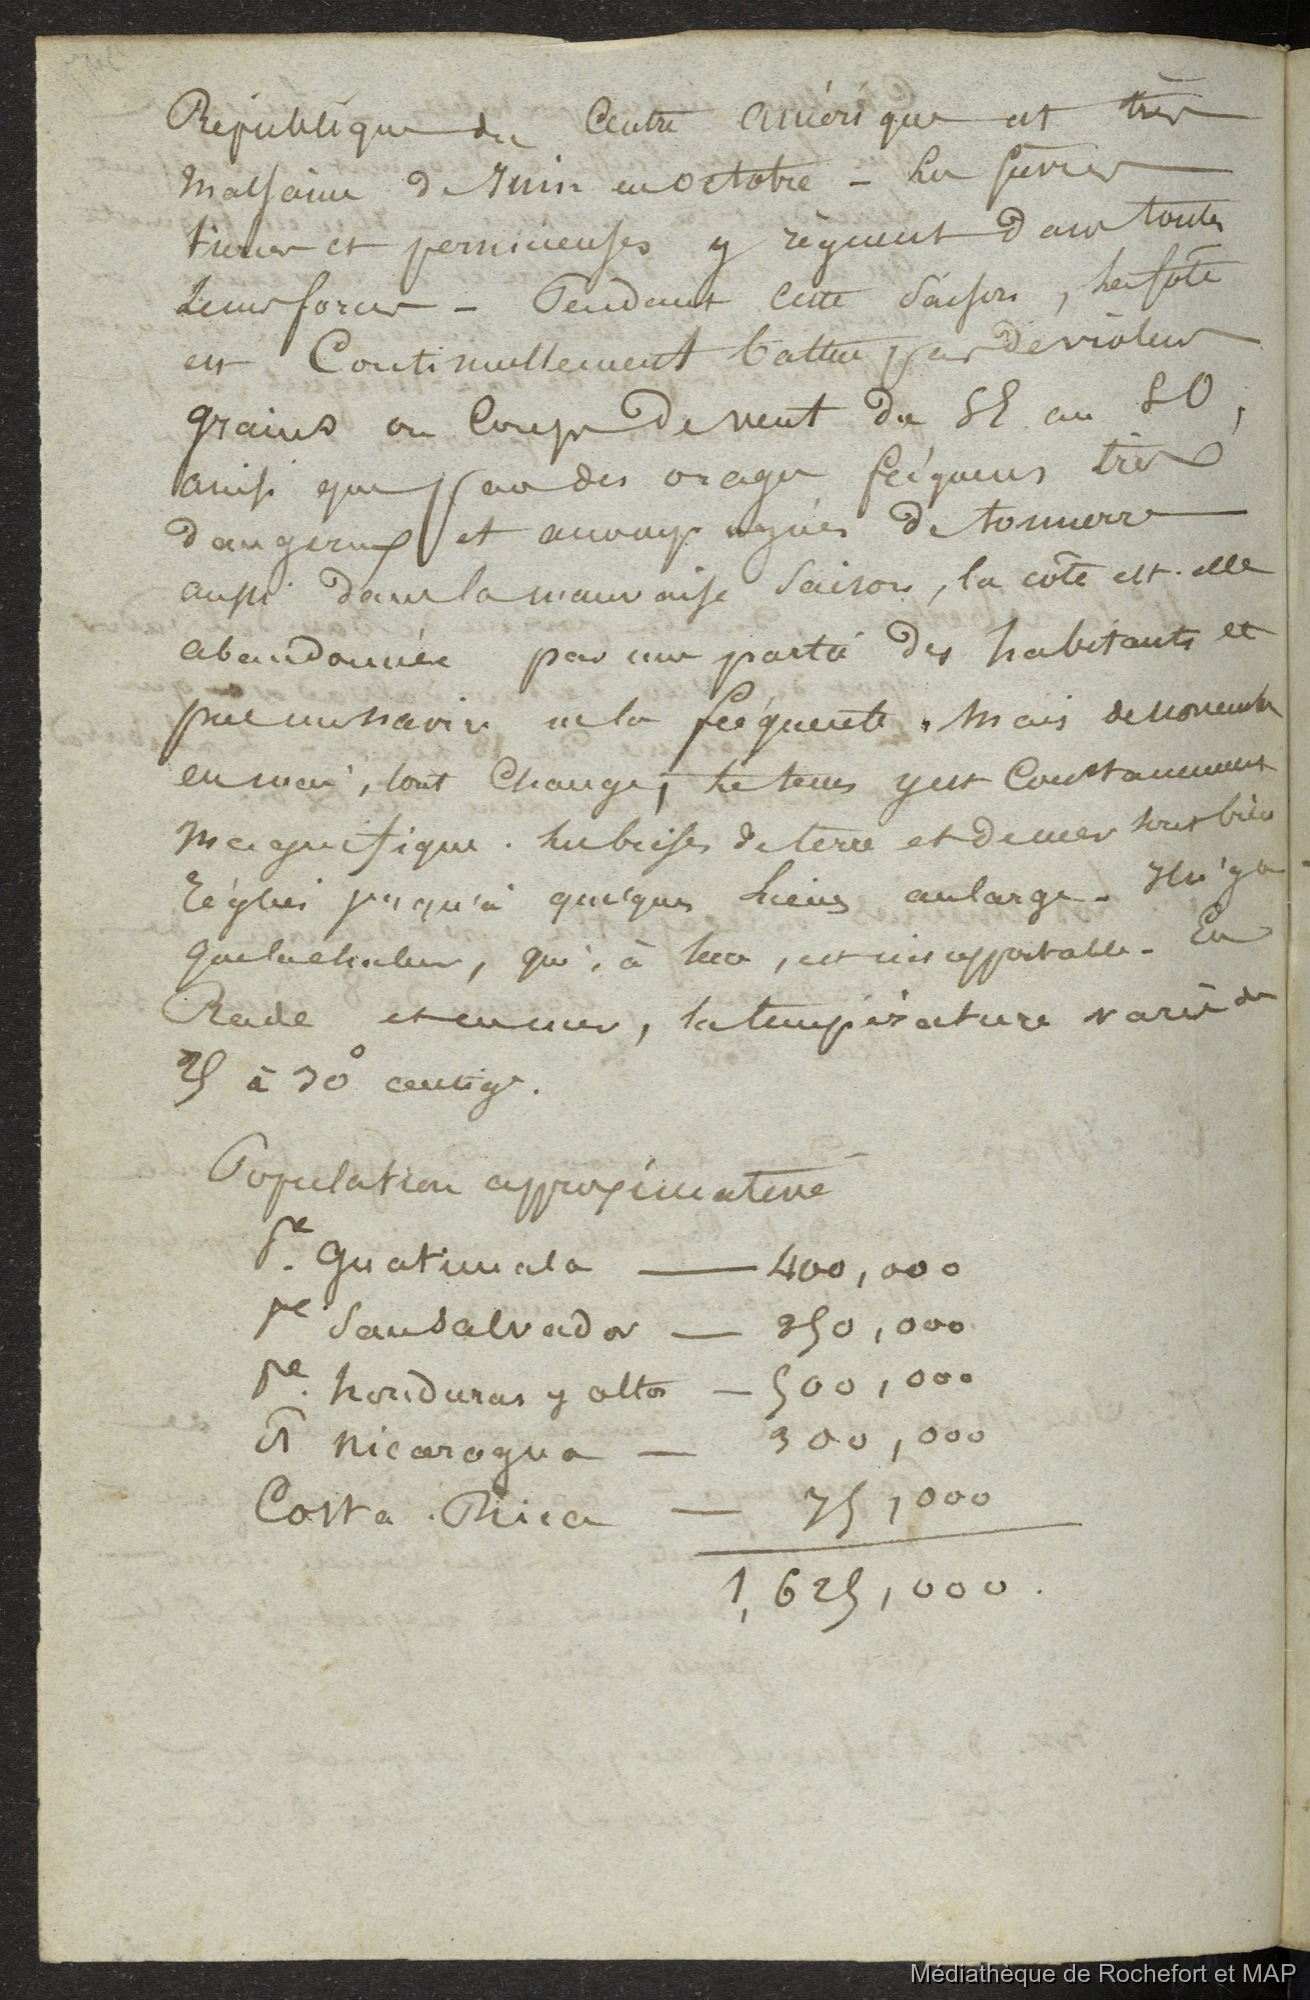 République du Centre Amérique est très
malsaine de Juin en octobre - Les fièvres
et pernicieuses y règnent dans toutes
leurs forces - Pendant cette saison, la côte
est Continuellement battue par de violens
grains ou Coups de vent du SE au SO,
ainsi que par des orages fréquens très
dangereux et accompagnés de tonnerre
aussi dans la mauvaise saison, la côte est-elle
abandonnée par une partie des habitants et
pas un navire ne la fréquente. Mais de novembre
en mai, tout Change, le tems y est Constamment
Magnifique. Les brises de terre et de mer sont bien
réglées jusqu'à quelques lieues au large. Il n'y a
que la chaleur, qui, à terre, est insupportable - En
Rade et en mer, la température varie de
25 à 30° centig.
Population approximative
Pe. Guatimala — 400,000
Pe San Salvador — 350,000
Pe. honduras y altos — 500,000
Nicaragua — 300,000
Costa Rica — 75,000
1,625,000.
Médiathèque de Rochefort et MAP